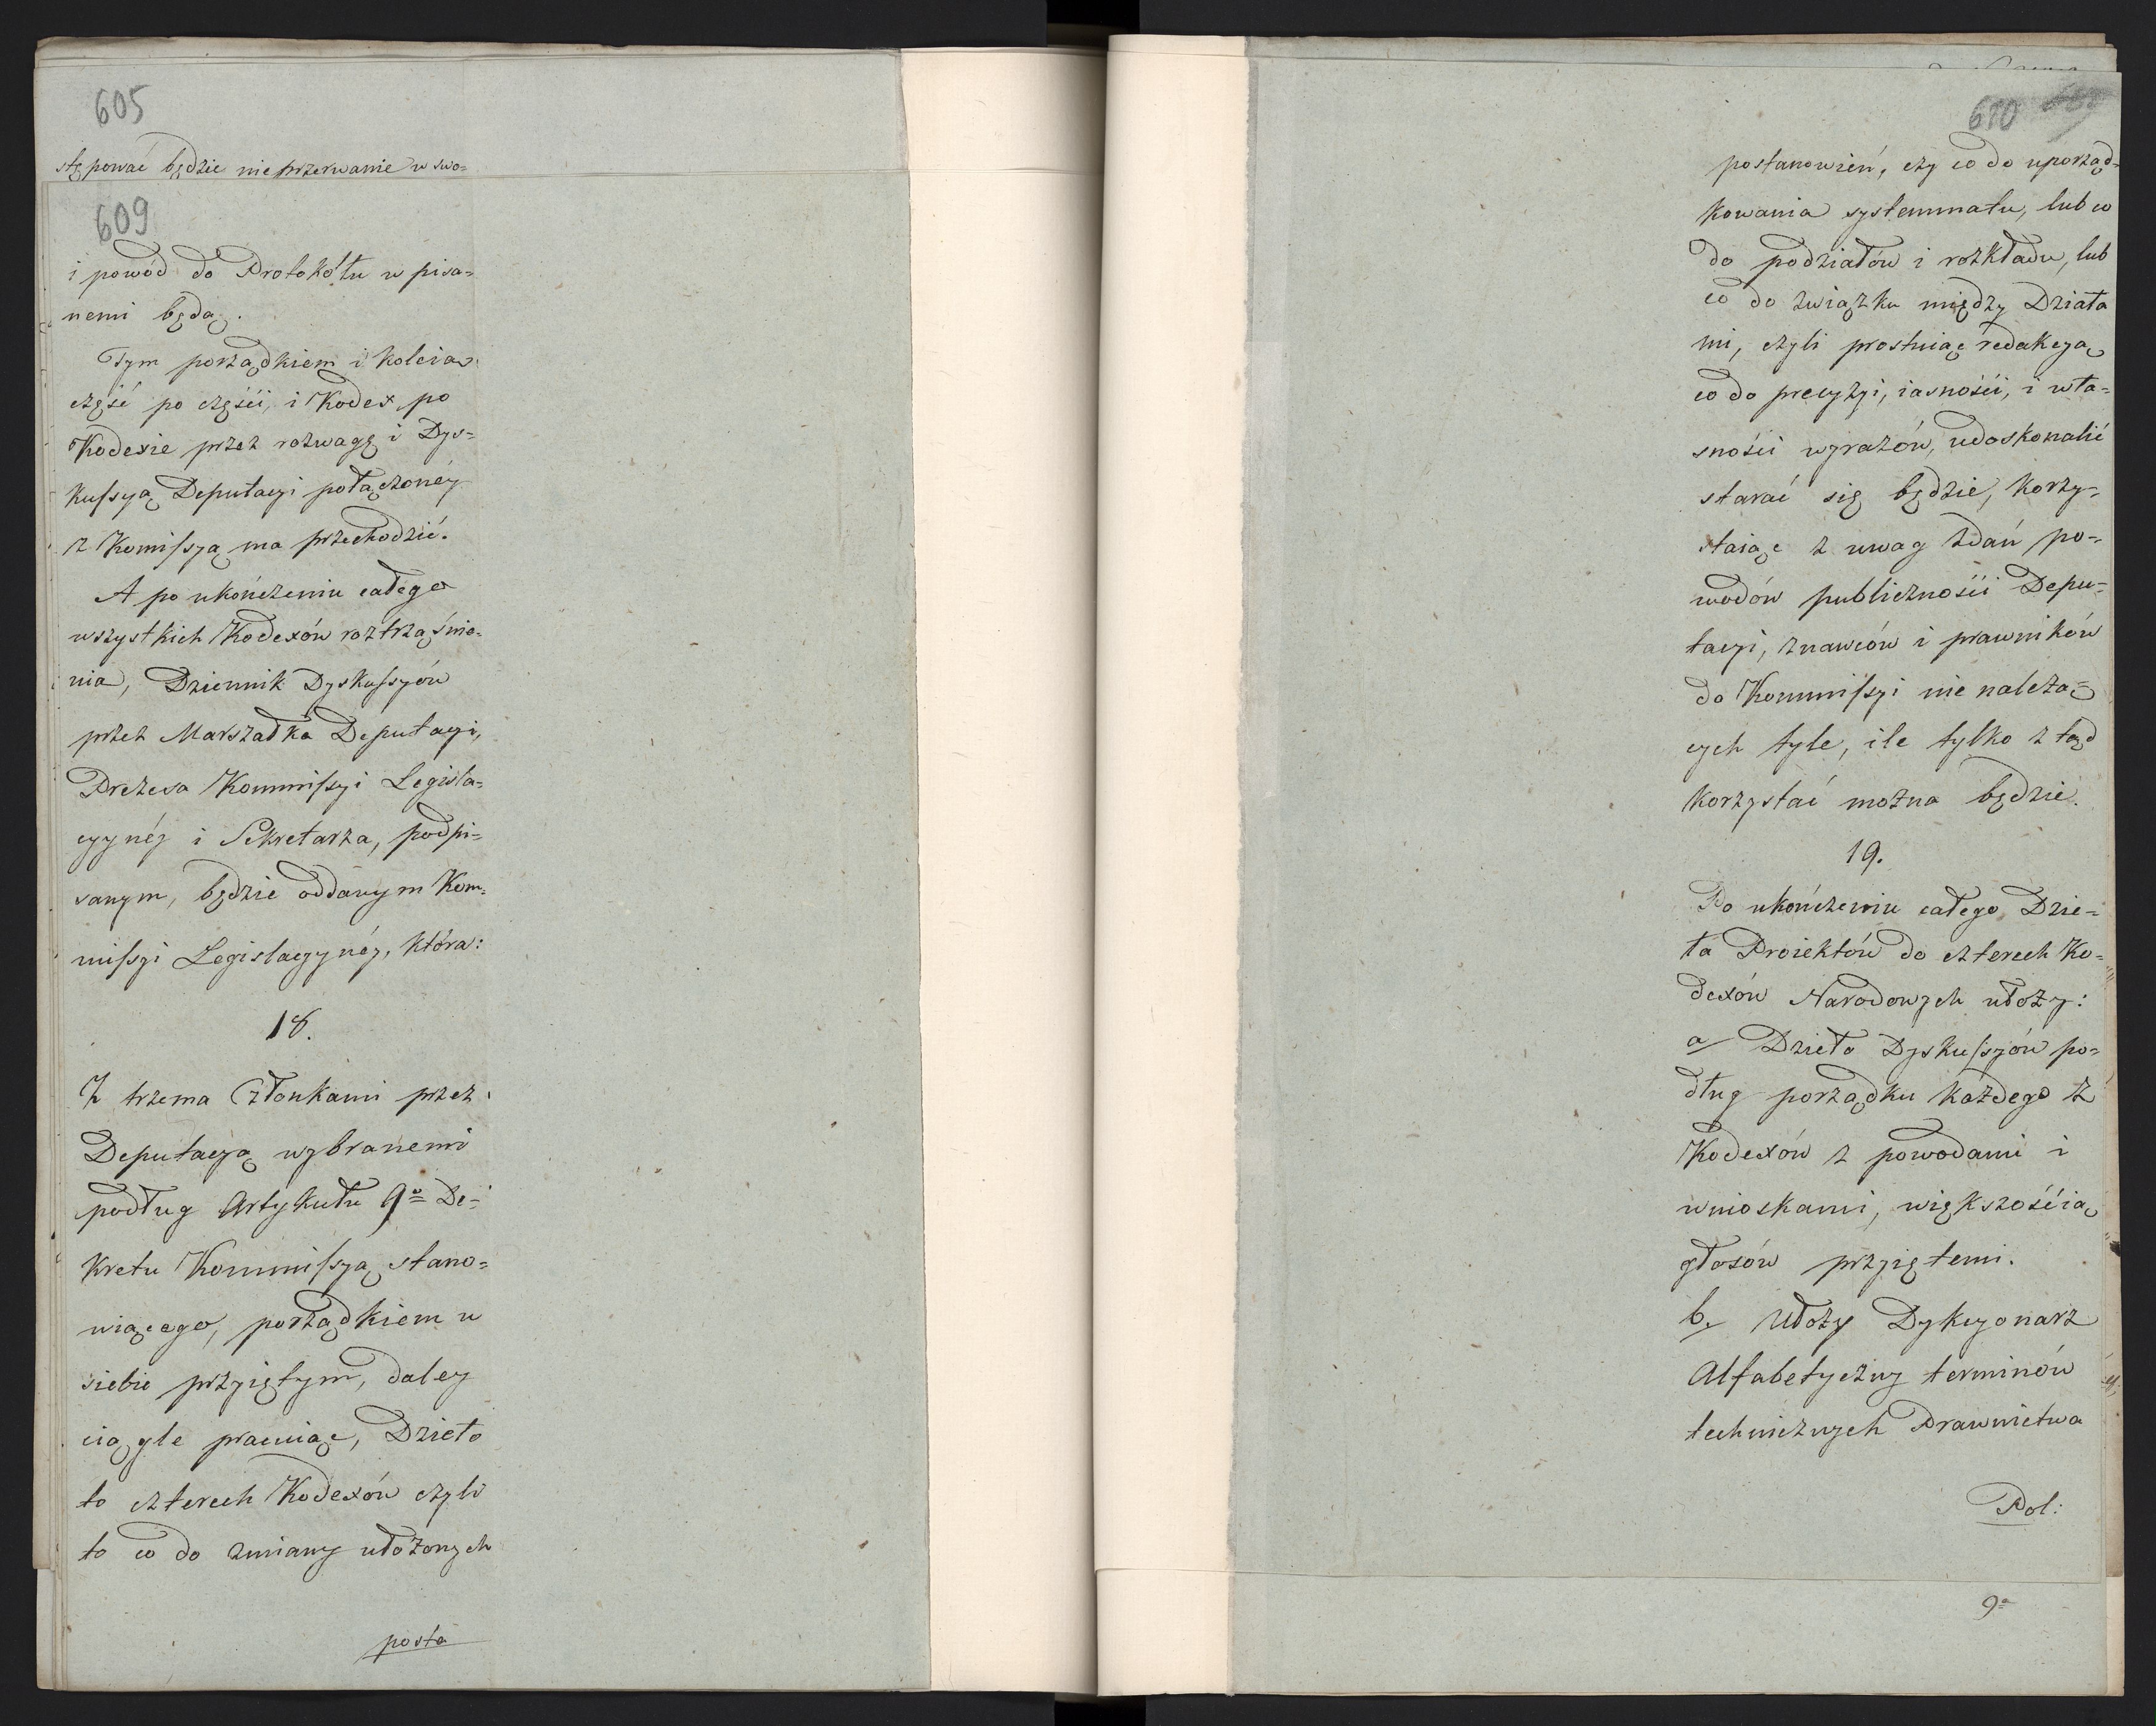 605
stępować będzie nieprzerwanie w swo=
609
i powód do Protokółu w pisa=
nemi będą.
Tym porządkiem i koleią
część po częśći, i Kodex po
Kodexie przez rozwagę i Dys=
kussyą Deputacyi połączonéy
z Komissyą ma przechodzić.
A po ukończeniu całego
wszystkich Kodexów roztrząśnie=
nia, Dziennik Dyskussyów
przez Marszałka Deputacyi,
Prezesa Kommissyi Legisla=
cyynéj i Sekretarza, podpi=
sanym, będzie oddanym Kom=
missyi Legislacyynéj, która:
18.
Z trzema Członkami przez
Deputacyą wybranemi
podług Artykułu 9º De=
kretu Kommissyą stano=
wiącego, porządkiem u
siebie przyiętym, daley
ciągle pracuiąc, Dzieło
to czterech Kodexów czyli
to co do zmiany ułożonych
posta
610
postanowień, czy co do uporząd=
kowania systemmatu, lub co
do podziałów i rozkładu, lub
co do związku między Działa
mi, czyli prostuiąc redakcyą
co do precyzyi, iasnośći, i wła=
snośći wyrazów, udoskonalić
starać się będzie, korzy=
staiąc z uwag zdań po=
wodów publicznośći Depu=
tacyi, znawców i prawników
do Kommissyi nie należą=
cych tyle, ile tylko z tąd
korzystać można będzie.
19.
Po ukończeniu całego Dzie=
ła Proiektów do czterech Ko=
dexów Narodowych ułoży:
a/ Dzieło Dyskussyów po=
dług porządku każdego z
Kodexów z powodami i
wnioskami, większośćią
głosów przyiętemi.
b/ Ułoży Dykcyonarz
Alfabetyczny terminów
technicznych Prawnictwa
Pol:
9º